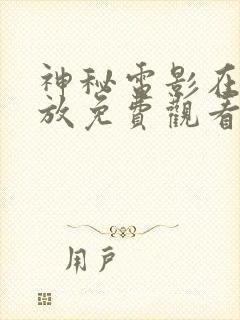 神秘電影在
放免費觀看
用戶